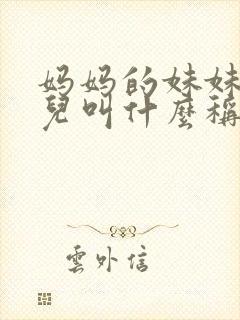 妈妈的妹妹
兒叫什麼稱
雲外信